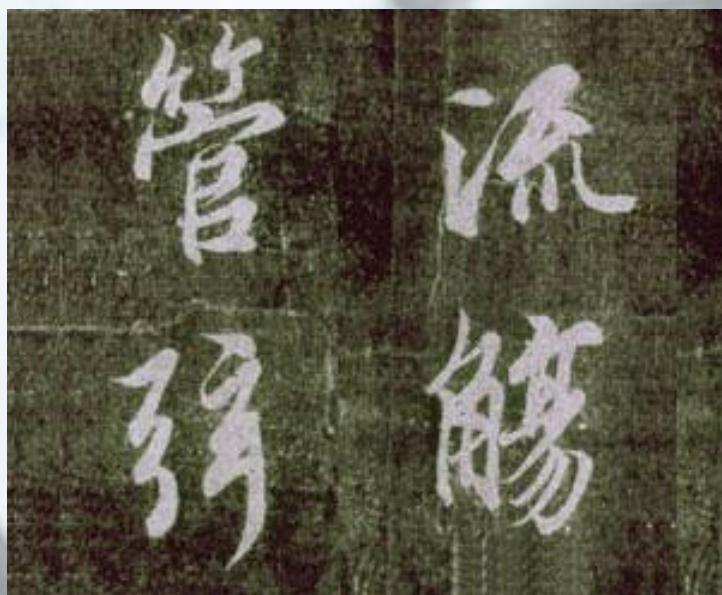 流觴
管弦